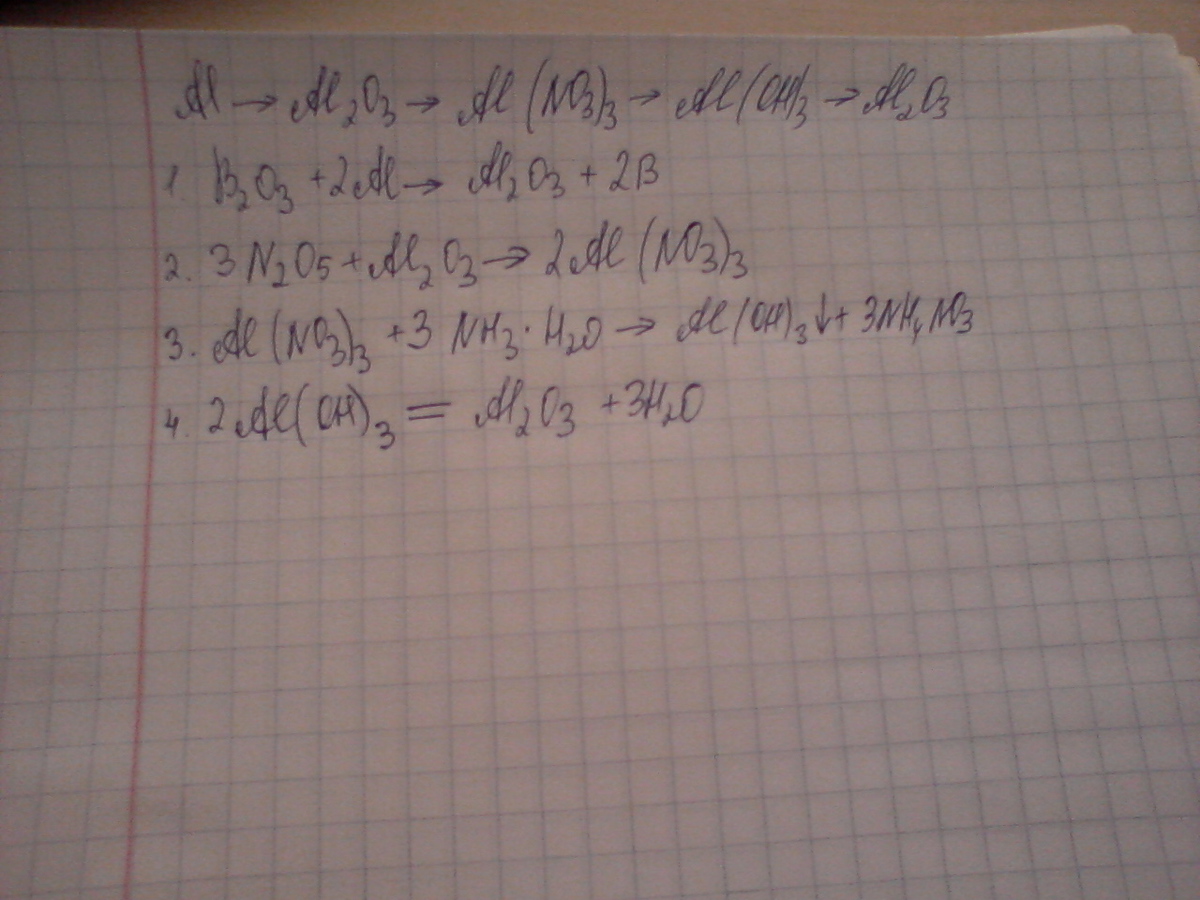 Al → Al₂O₃ → Al(NO₃)₃ → Al(OH)₃ → Al₂O₃
1. B₂O₃ + 2Al → Al₂O₃ + 2B
2. 3N₂O₅ + Al₂O₃ → 2Al(NO₃)₃
3. Al(NO₃)₃ + 3NH₃·H₂O → Al(OH)₃↓ + 3NH₄NO₃
4. 2Al(OH)₃ = Al₂O₃ + 3H₂O